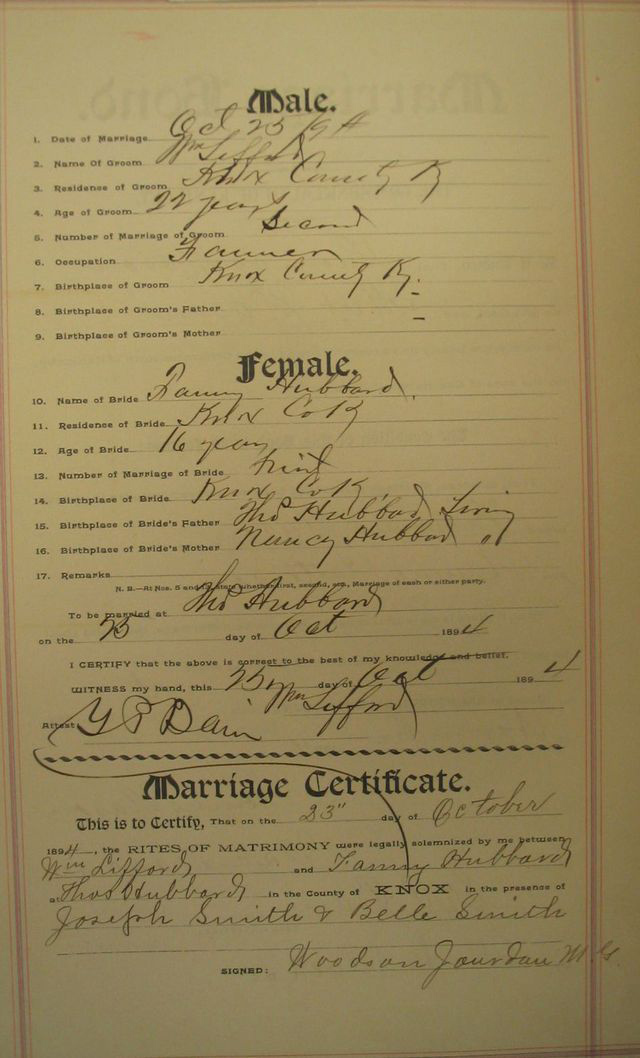 Male.
1. Date of Marriage Oct 25 1894
2. Name Of Groom Wm Lifford
3. Residence of Groom Knox County Ky
4. Age of Groom 22 years
5. Number of Marriage of Groom Second
6. Occupation Farmer
7. Birthplace of Groom Knox County Ky.
8. Birthplace of Groom's Father -
9. Birthplace of Groom's Mother -
Female.
10. Name of Bride Fanny Hubbard.
11. Residence of Bride Knox Co K
12. Age of Bride 16 years
13. Number of Marriage of Bride First
14. Birthplace of Bride Knox Co K
15. Birthplace of Bride's Father Tho Hubbard Living
16. Birthplace of Bride's Mother Nancy Hubbard "
17. Remarks
N. B.—At Nos. 5 and state whether first, second, etc., Marriage of each or either party.
To be married at Tho Hubbard
on the 25 day of Oct 1894
I CERTIFY that the above is correct to the best of my knowledge and belief.
WITNESS my hand, this 25 day of Oct 1894
Wm Lifford
Attest:
Marriage Certificate.
This is to Certify, That on the 25" day of October
1894, the RITES OF MATRIMONY were legally solemnized by me between
Wm Lifford and Fanny Hubbard
at Thos Hubbard in the County of KNOX in the presence of
Joseph Smith & Belle Smith
SIGNED: Woodson Jourdan M.G.